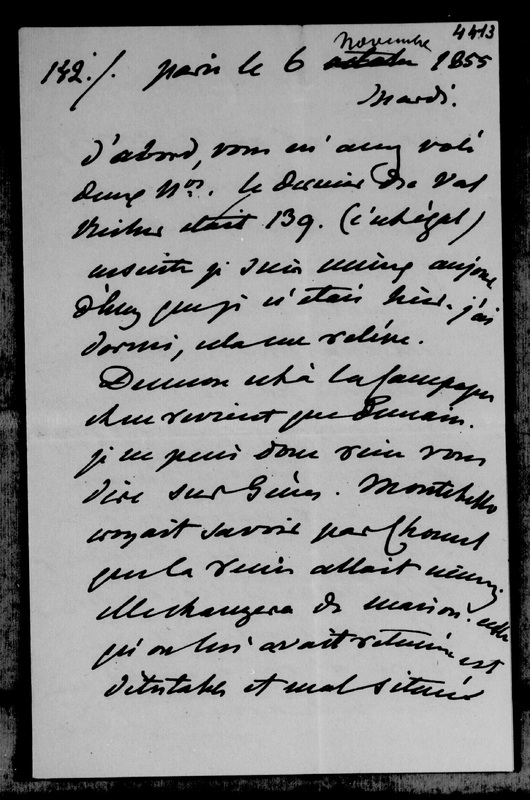 4413
novembre
142./. paris le 6 octobre 1855
Mardi.
D'abord, vous m'avez volé
deux Nos. le dernier du Val
Richer était 139. (inégal)
ensuite je suis mieux aujour
d'huy que je n'étais hier. j'ai
dormi, cela me relève.
Dumon est à la Campagne
et ne revient que Demain.
je ne puis donc rien vous
dire sur Gènes. Montebello
croyait savoir par Chomel
que la reine allait mieux.
elle changera de maison. celle
qu'on lui avait retenue est
détestable et mal située